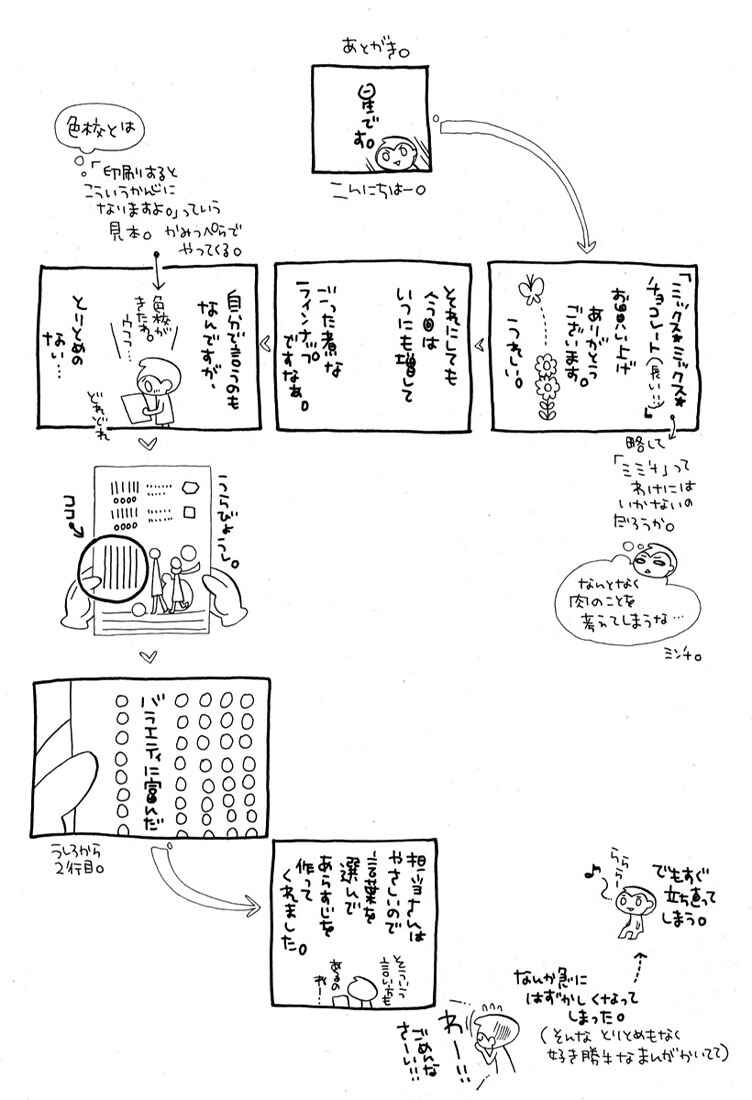 あとがき。
㊐星です。
こんにちはー。
「ミックス*ミックス*
チョコレート(長い!!)」
お買い上げ
ありがとう
ございます。
うれしい。
略して
「ミミチ」って
わけには
いかないの
だろうか。
なんとなく
肉のことを
考えてしまうな…
ミンチ。
それにしても
今回は
いつにも増して
ごった煮な
ラインナップ
ですなあ。
色校とは
「印刷すると
こういうかんじに
なりますよ。」っていう
見本。かみっぺらで
やってくる。
自分で言うのも
なんですが、
色校が
きたわ。
ウフフ…
とりとめの
ない…
どれどれ
うらびょうし。
ココ。
バラエティに富んだ
うしろから
2行目。
担当さんは
やさしいので
言葉を
選んで
あらすじを
作って
くれました。
そういう
言い方も
あるの
ねー…
わーー!!
ごめんな
さーい!!
なんか急に
はずかしくなって
しまった。
(そんな とりとめもなく
好き勝手なまんがかいてて)
でもすぐ
立ち直って
しまう。
ららら〜
♪